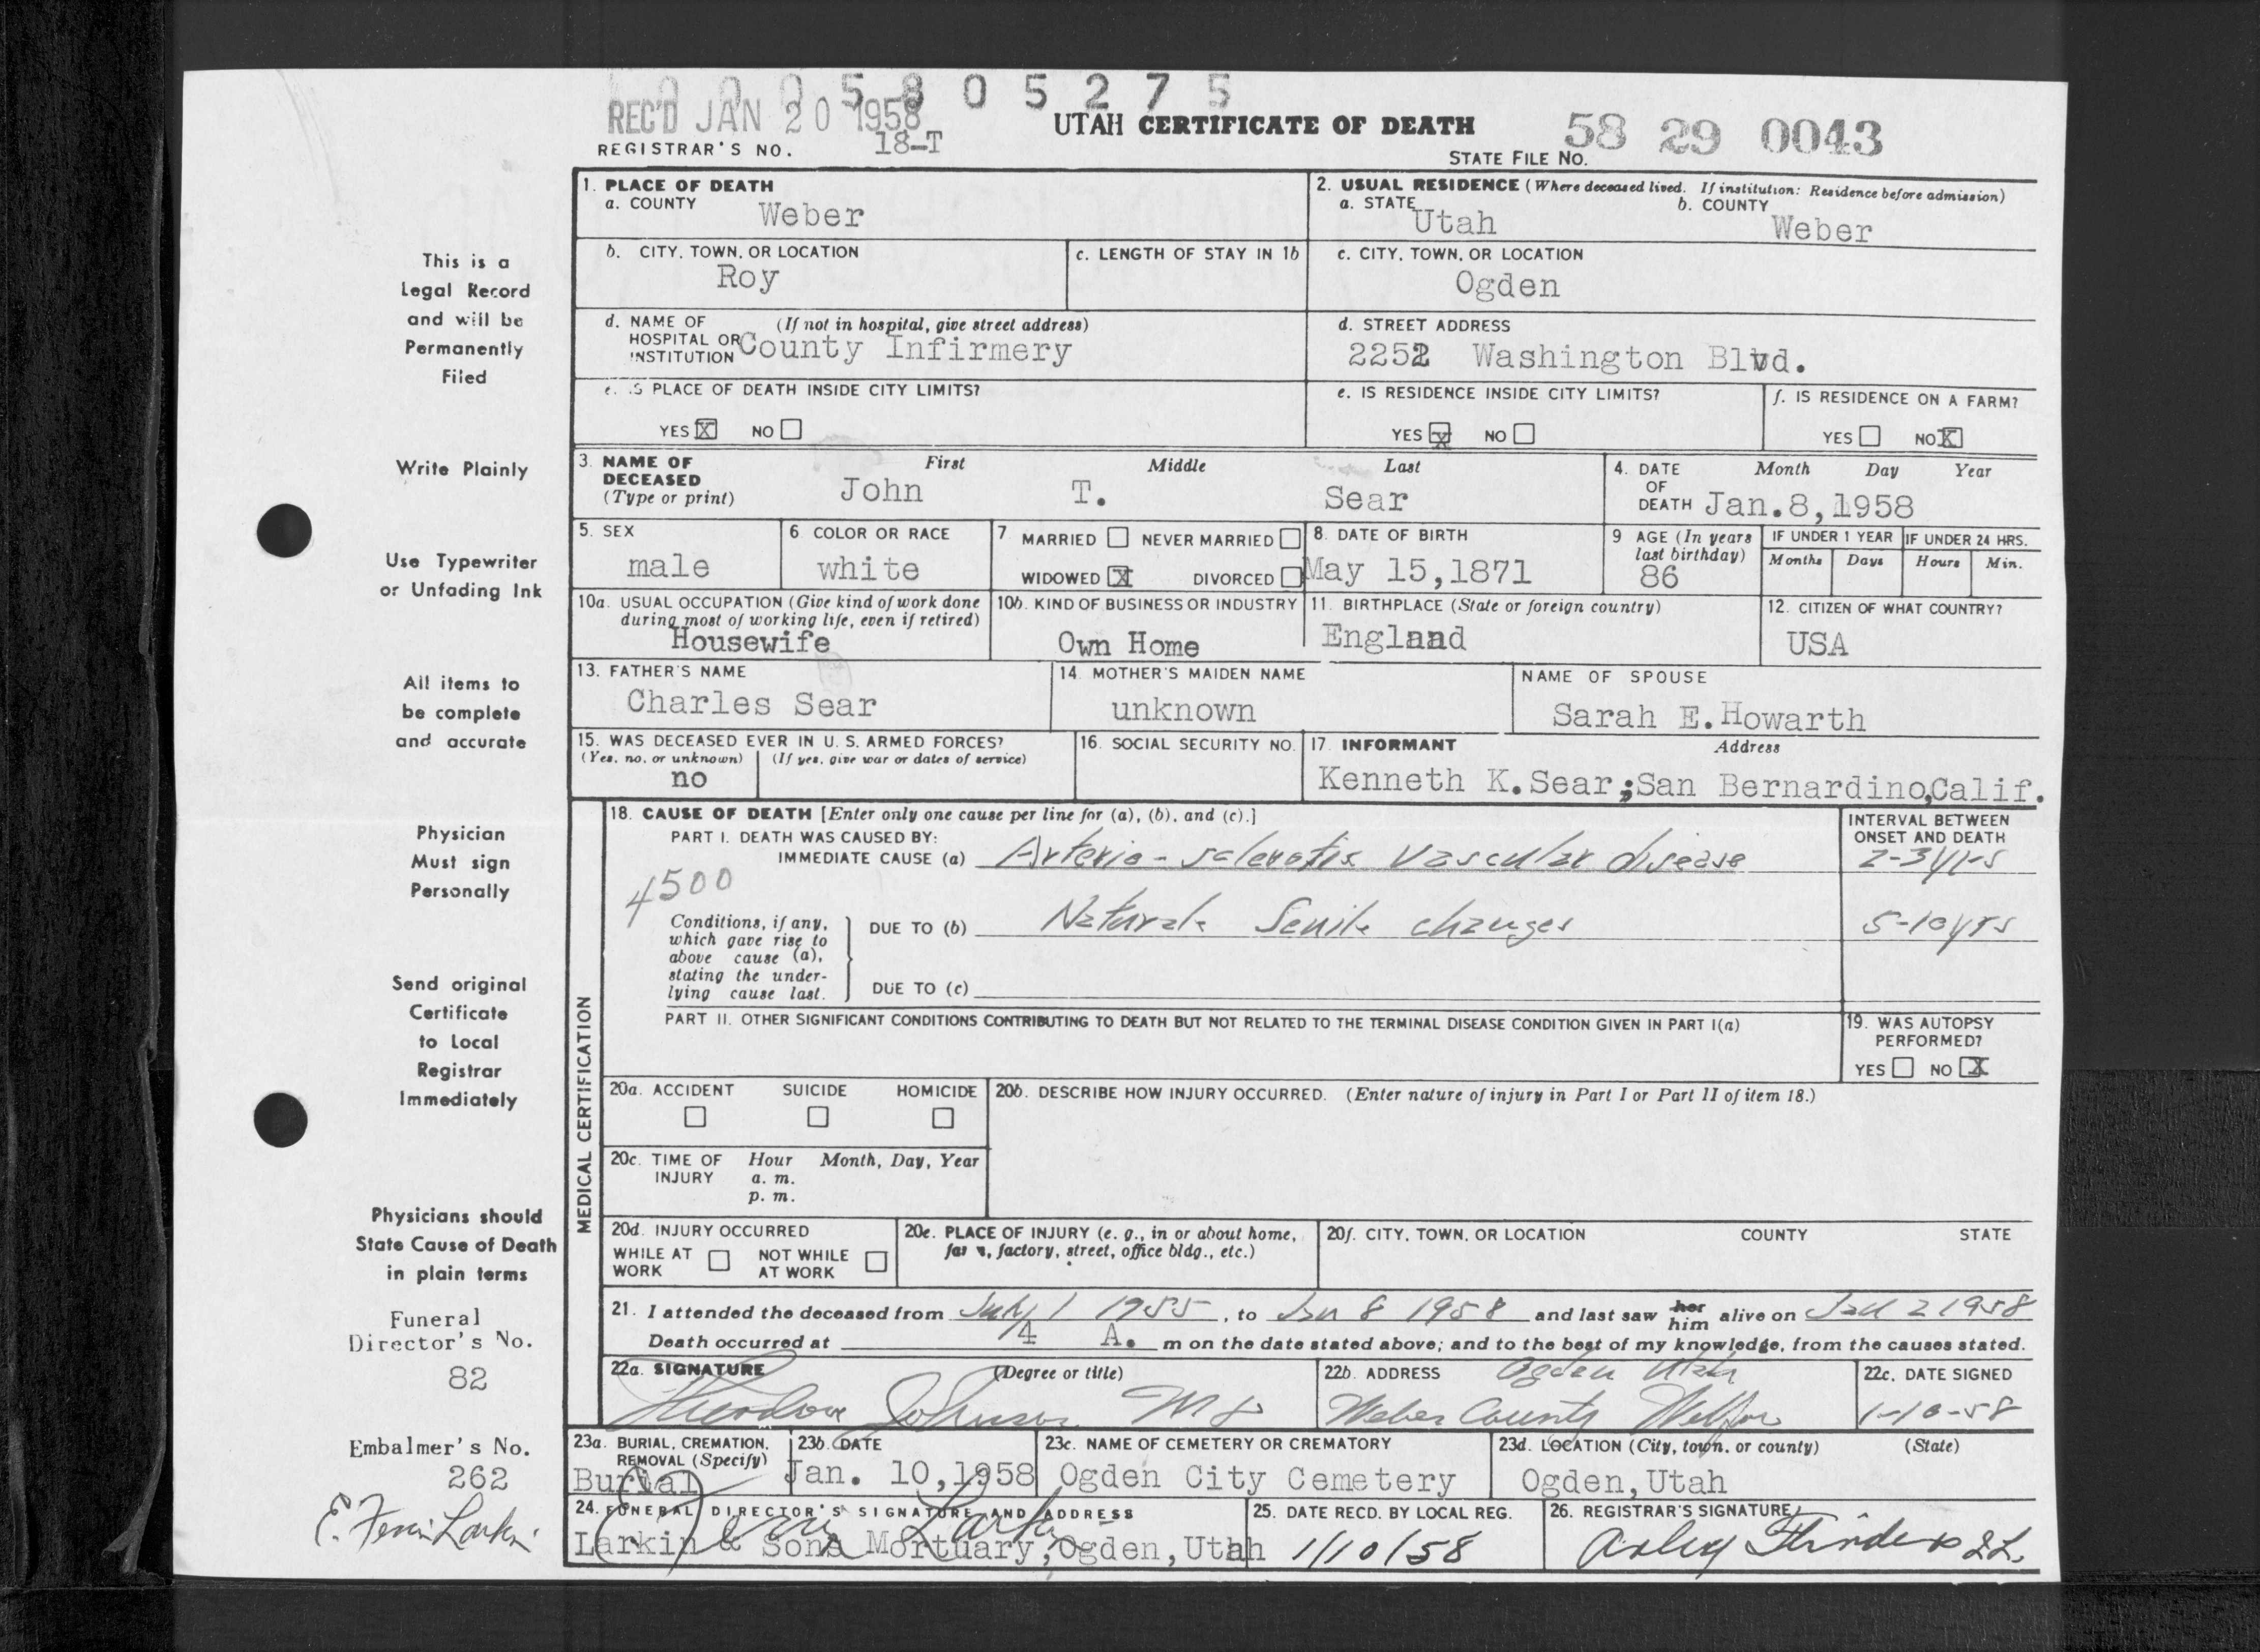 0 0 0 5 8 0 5 2 7 5
REC'D JAN 20 1958
UTAH CERTIFICATE OF DEATH
58 29 0043
REGISTRAR'S NO. 18-T
STATE FILE NO.
1. PLACE OF DEATH
a. COUNTY Weber
2. USUAL RESIDENCE (Where deceased lived. If institution: Residence before admission)
a. STATE Utah b. COUNTY Weber
b. CITY, TOWN, OR LOCATION Roy
c. LENGTH OF STAY IN 1b
c. CITY, TOWN, OR LOCATION Ogden
d. NAME OF HOSPITAL OR INSTITUTION (If not in hospital, give street address) County Infirmery
d. STREET ADDRESS 2252 Washington Blvd.
e. IS PLACE OF DEATH INSIDE CITY LIMITS?
YES X NO
e. IS RESIDENCE INSIDE CITY LIMITS?
YES X NO
f. IS RESIDENCE ON A FARM?
YES NO X
3. NAME OF DECEASED (Type or print) First Middle Last
John T. Sear
4. DATE OF DEATH Month Day Year
Jan.8,1958
5. SEX male
6 COLOR OR RACE white
7 MARRIED NEVER MARRIED
WIDOWED X DIVORCED
8. DATE OF BIRTH May 15,1871
9 AGE (In years last birthday) 86
IF UNDER 1 YEAR Months Days
IF UNDER 24 HRS. Hours Min.
10a. USUAL OCCUPATION (Give kind of work done during most of working life, even if retired) Housewife
10b. KIND OF BUSINESS OR INDUSTRY Own Home
11. BIRTHPLACE (State or foreign country) England
12. CITIZEN OF WHAT COUNTRY? USA
13. FATHER'S NAME Charles Sear
14. MOTHER'S MAIDEN NAME unknown
NAME OF SPOUSE Sarah E.Howarth
15. WAS DECEASED EVER IN U. S. ARMED FORCES?
(Yes, no, or unknown) no (If yes, give war or dates of service)
16. SOCIAL SECURITY NO.
17. INFORMANT Address
Kenneth K.Sear;San Bernardino,Calif.
18. CAUSE OF DEATH [Enter only one cause per line for (a), (b), and (c).]
PART I. DEATH WAS CAUSED BY:
IMMEDIATE CAUSE (a) Arterio-sclerotic vascular disease
INTERVAL BETWEEN ONSET AND DEATH
2-3 yrs
4500
Conditions, if any, which gave rise to above cause (a), stating the underlying cause last.
DUE TO (b) Natural Senile changes 5-10 yrs
DUE TO (c)
PART II. OTHER SIGNIFICANT CONDITIONS CONTRIBUTING TO DEATH BUT NOT RELATED TO THE TERMINAL DISEASE CONDITION GIVEN IN PART I(a)
19. WAS AUTOPSY PERFORMED?
YES NO X
MEDICAL CERTIFICATION
20a. ACCIDENT SUICIDE HOMICIDE
20b. DESCRIBE HOW INJURY OCCURRED. (Enter nature of injury in Part I or Part II of item 18.)
20c. TIME OF INJURY Hour Month, Day, Year
a. m.
p. m.
20d. INJURY OCCURRED
WHILE AT WORK NOT WHILE AT WORK
20e. PLACE OF INJURY (e. g., in or about home, farm, factory, street, office bldg., etc.)
20f. CITY, TOWN, OR LOCATION COUNTY STATE
21. I attended the deceased from July 1 1955, to Jan 8 1958 and last saw her him alive on Jan 2 1958
Death occurred at 4 A. m on the date stated above; and to the best of my knowledge, from the causes stated.
22a. SIGNATURE (Degree or title)
Theodore Johnson MD
22b. ADDRESS Ogden Utah
Weber County Welfare
22c. DATE SIGNED
1-10-58
23a. BURIAL, CREMATION, REMOVAL (Specify) Burial
23b. DATE Jan. 10,1958
23c. NAME OF CEMETERY OR CREMATORY Ogden City Cemetery
23d. LOCATION (City, town, or county) (State) Ogden,Utah
24. FUNERAL DIRECTOR'S SIGNATURE AND ADDRESS
Larkin & Sons Mortuary,Ogden,Utah
25. DATE RECD. BY LOCAL REG. 1/10/58
26. REGISTRAR'S SIGNATURE
This is a
Legal Record
and will be
Permanently
Filed
Write Plainly
Use Typewriter
or Unfading Ink
All items to
be complete
and accurate
Physician
Must sign
Personally
Send original
Certificate
to Local
Registrar
Immediately
Physicians should
State Cause of Death
in plain terms
Funeral
Director's No.
82
Embalmer's No.
262
Larkin